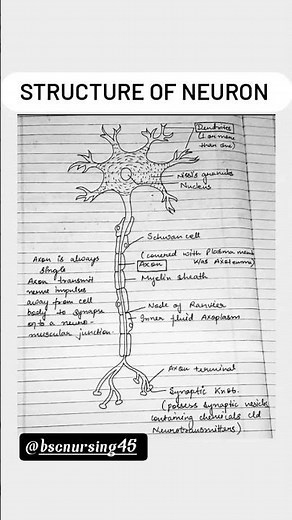 STRUCTURE OF NEURON
Dendrites
(1 or more
than one)
Nissl's granules
Nucleus
Schwan cell
(covered with Plasma mem
k/as Axolemma)
Axon
Myelin sheath
Axon is always
single
Axon transmit
nerve impulses
away from cell
body to synapse
or to a neuro
muscular junction.
Node of Ranvier
Inner fluid Axoplasm
Axon terminal
Synaptic Knob.
(possess synaptic vesicle
containing chemicals cld
Neurotransmitters)
@bscnursing45